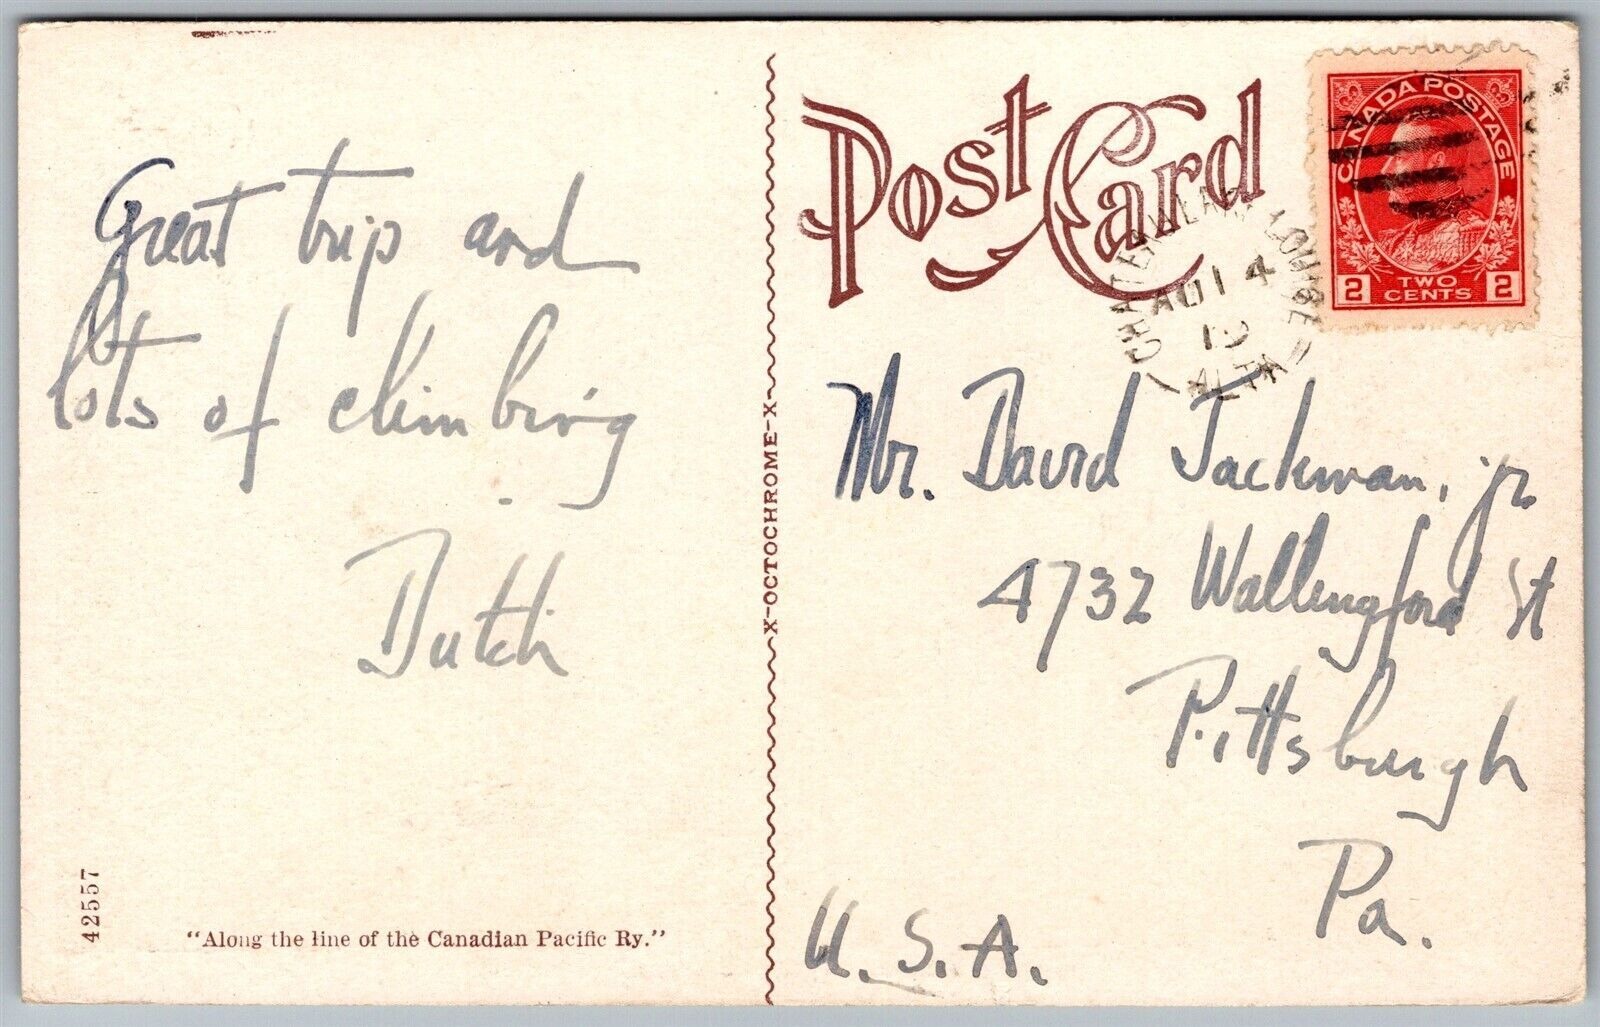 Great trip and
lots of climbing
Dutch
42557
"Along the line of the Canadian Pacific Ry."
X-OCTOCHROME-X
Post Card
CANADA POSTAGE
2 TWO CENTS 2
CHATEAU LAKE LOUISE
AU 14
ALTA
Mr. David Jackman, jr
4732 Wallingford St
Pittsburgh
Pa.
U.S.A.